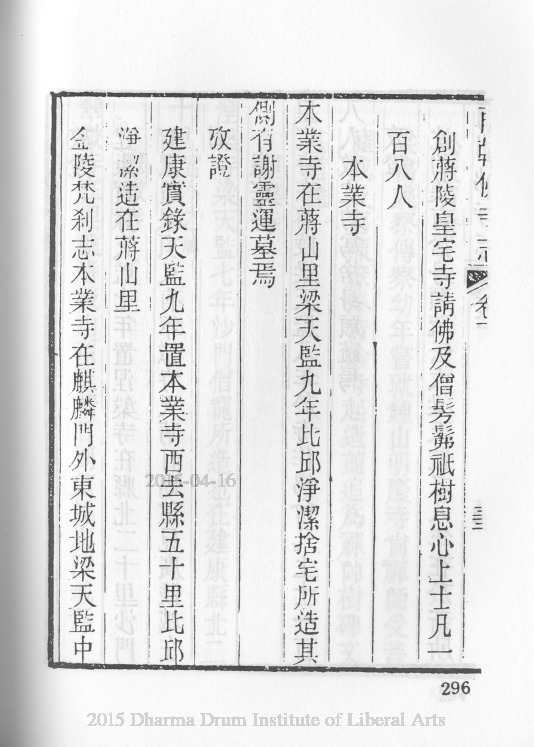 南朝佛寺志 卷下
創蔣陵皇宅寺請佛及僧髣髴祇樹息心上士凡一
百八人
本業寺
本業寺在蔣山里梁天監九年比邱淨潔捨宅所造其
側有謝靈運墓焉
攷證
建康實錄天監九年置本業寺西去縣五十里比邱
淨潔造在蔣山里
金陵梵刹志本業寺在麒麟門外東城地梁天監中
296
2015-04-16
2015 Dharma Drum Institute of Liberal Arts